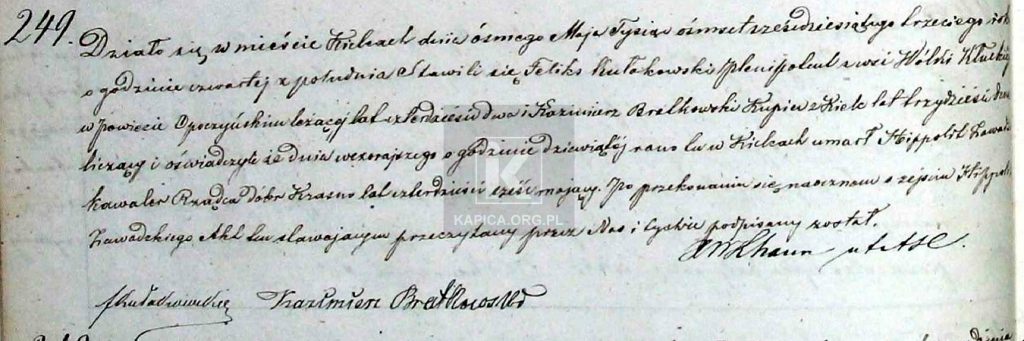 249.
Działo się w mieście Kielcach dnia ósmego Maja Tysiąc ośmset sześćdziesiątego trzeciego roku
o godzinie czwartej z południa Stawili się Feliks Kułakowski Plenipotent z wsi Wólki Kłuckiej
w Powiecie Opoczyńskim leżącej lat czterdzieści dwa i Kazimierz Bretkowski Kupiec z Kielc lat trzydzieści dwa
liczący i oświadczyli że dnia wczorajszego o godzinie dziewiątej rano tu w Kielcach umarł Hippolit Zawadzki
Kawaler Rządca dóbr Krasno lat czterdzieści sześć mający. Po przekonaniu się naocznem o zejściu Hippolita
Zawadzkiego Akt ten stawającym przeczytany przez Nas i tychże podpisany został.
Kazimierz Bretkowski
KAPICA.ORG.PL